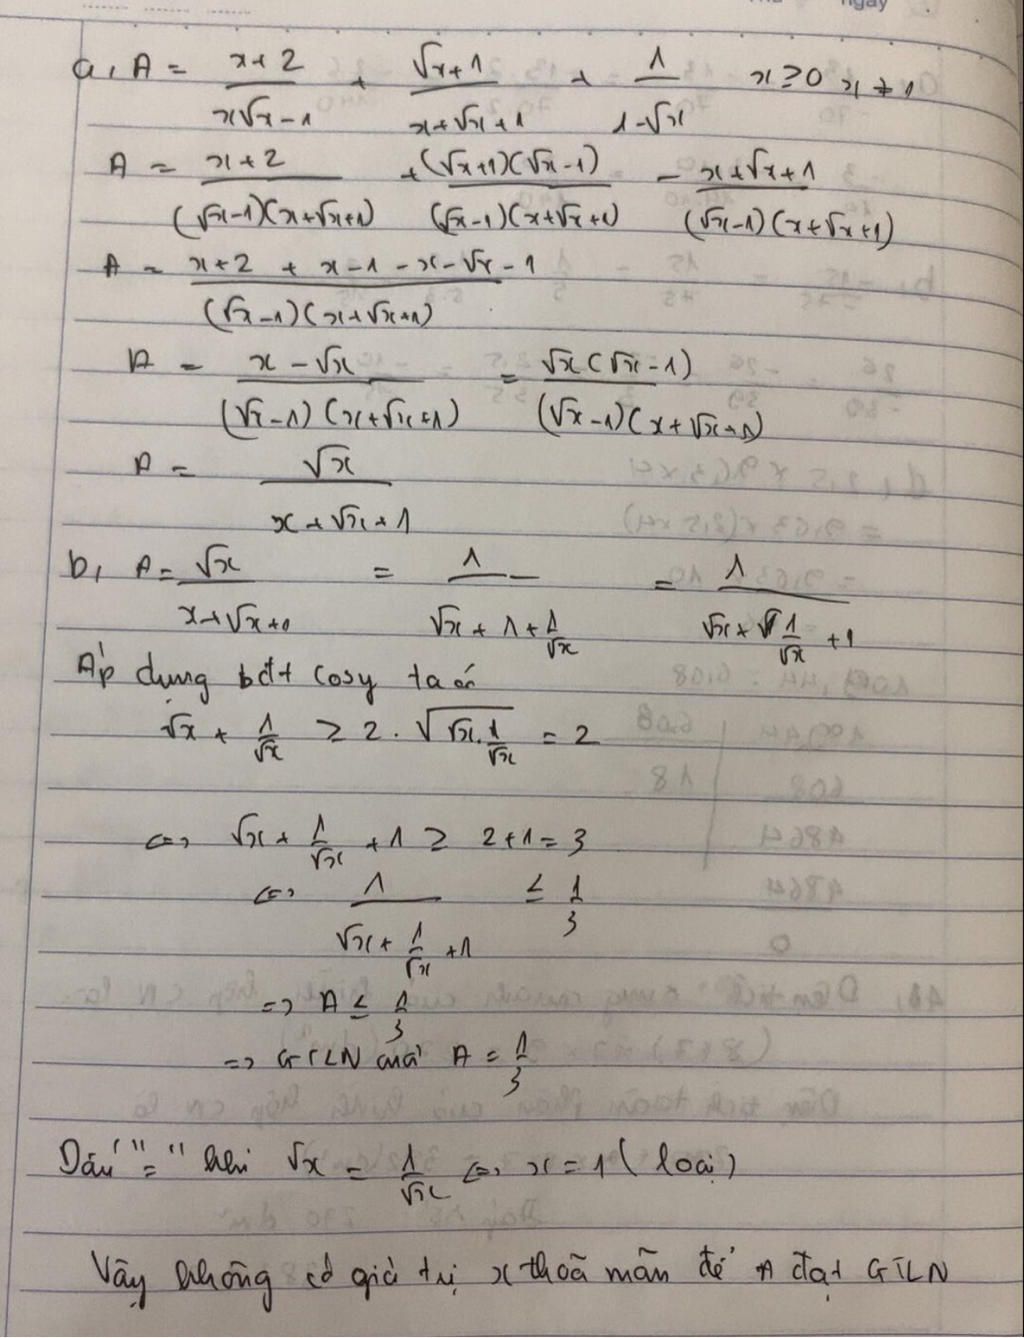 a, A = (x+2)/(x√x-1) + (√x+1)/(x+√x+1) + 1/(1-√x) x ≥ 0 x ≠ 1
A = (x+2)/((√x-1)(x+√x+1)) + (√x+1)(√x-1)/((√x-1)(x+√x+1)) - (x+√x+1)/((√x-1)(x+√x+1))
A = (x+2 + x-1-x-√x-1)/((√x-1)(x+√x+1))
A = (x-√x)/((√x-1)(x+√x+1)) = √x(√x-1)/((√x-1)(x+√x+1))
A = √x/(x+√x+1)
b, A = √x/(x+√x+1) = 1/(√x+1+1/√x) = 1/(√x+1/√x+1)
Áp dụng bđt Cosy ta có
√x + 1/√x ≥ 2.√(√x.1/√x) = 2
<=> √x + 1/√x + 1 ≥ 2+1=3
<=> 1/(√x+1/√x+1) ≤ 1/3
=> A ≤ 1/3
=> GTLN của A = 1/3
Dấu "=" khi √x = 1/√x <=> x = 1 (loại)
Vậy không có giá trị x thoã mãn để A đạt GTLN